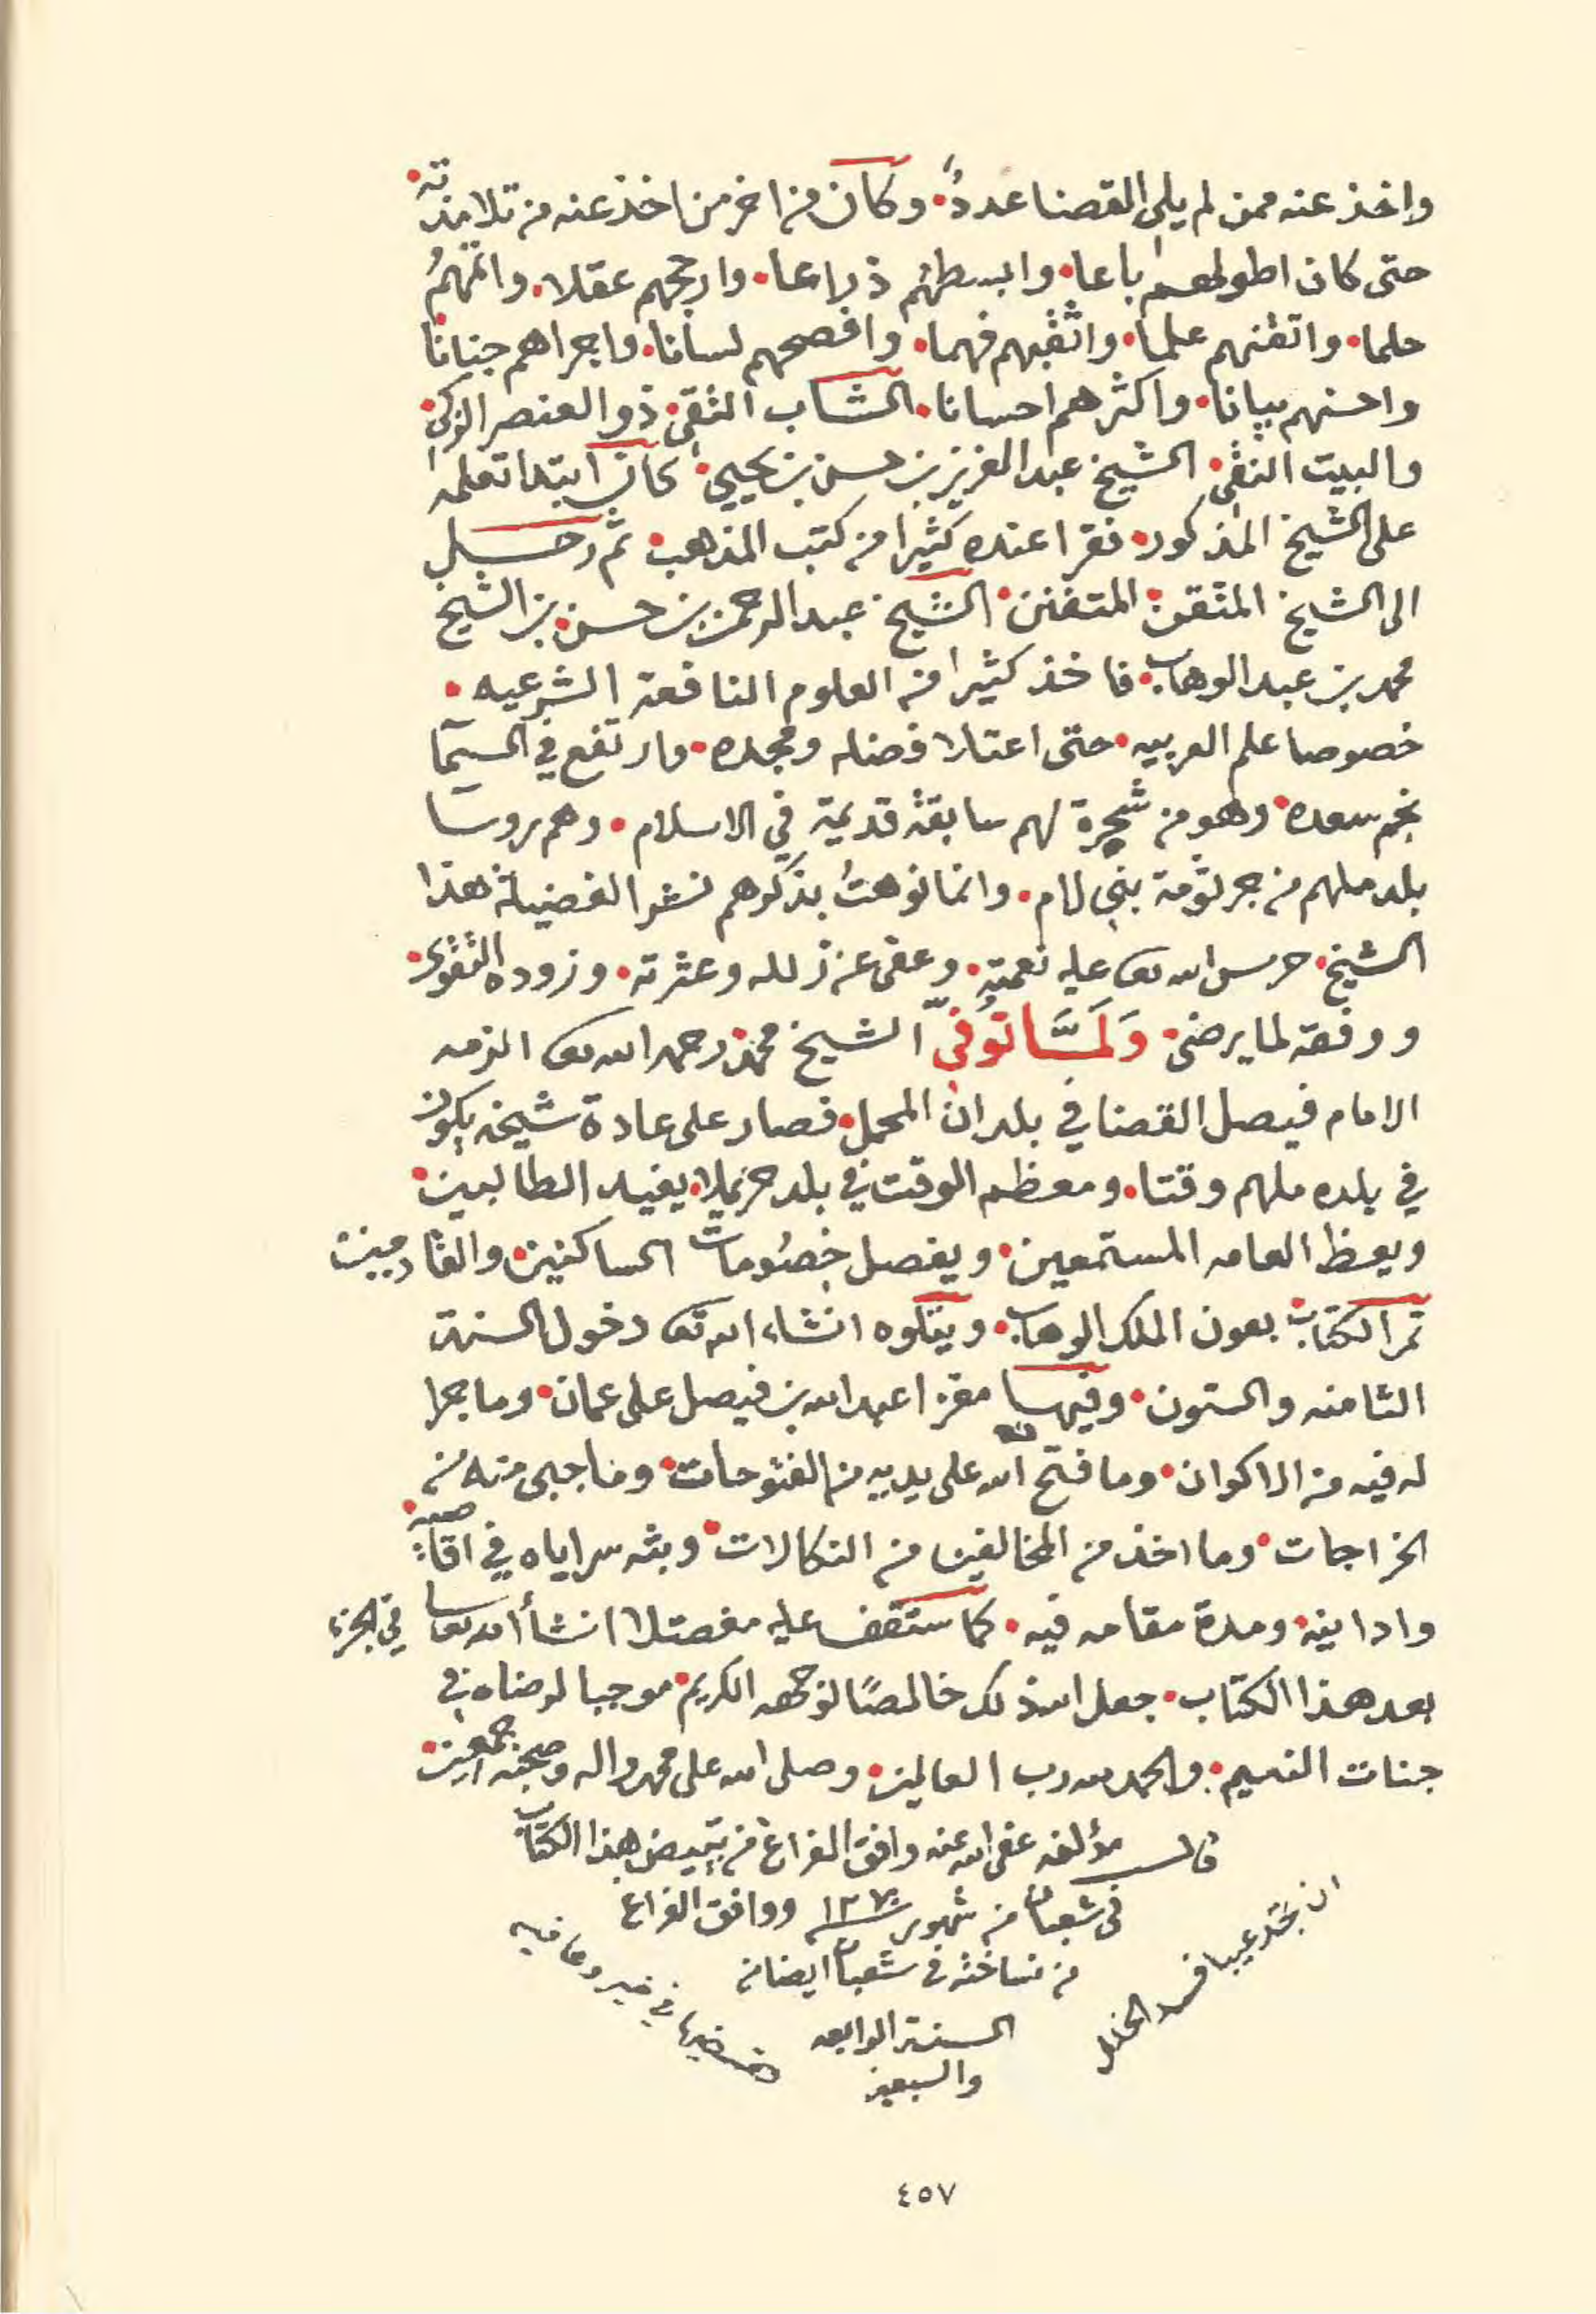 واخذ عنه ممن لم يلي القضا عددٌ. وكان من اخر من اخذ عنه من تلامذته.
حتى كان اطولهم باعا. وابسطهم ذراعا. وارجحهم عقلا. واتمهمُ
حلما. واتقنهم علما. واثقبهم فهما. وافصحهم لسانا. واجراهم جنانا
واحسنهم بيانا. واكثرهم احسانا. الشاب التقي. ذو العنصر الزكي.
والبيت النقي. الشيخ عبدالعزيز بن حسن بن يحيي. كان ابتدا تعلمه
على الشيخ المذكور. فقرا عنده كثيرا من كتب المذهب. ثم رحل
الى الشيخ المتقن. المتفنن. الشيخ عبدالرحمن بن حسن. بن الشيخ
محمد بن عبدالوهاب. فاخذ كثيرا من العلوم النافعة الشرعيه.
خصوصا علم العربيه. حتى اعتلا فضله ومجده. وارتفع في السمآ
نجم سعده. وهو من شجرة لهم سابقة قديمة في الاسلام. وهم روسا
بلد ملهم من جرثومة بني لام. وانما نوهتُ بذكرهم نشرا لفضيلة هذا
الشيخ. حرس الله تعا عليه نعمته. وعفى عن زلله وعثرته. وزوده التقوى.
ووفقه لما يرضى. وَلَمَّا توُفيّ الشيخ محمد. رحمه الله تعا الزمه
الامام فيصل القضا في بلدان المحمل. فصار على عادة شيخه يكون
في بلده ملهم وقتا. ومعظم الوقت في بلد حريملا. يفيد الطالبين.
ويعظ العامه المستمعين. ويفصل خصُومات الساكنين. والقادمين
تم الكتاب. بعون الملك الوهاب. ويتلوه انشاء الله تعا دخول السنة
الثامنه والستون. وفيها مغزا عبدالله بن فيصل على عمان. وما جرا
له فيه من الاكوان. وما فتح الله على يديه من الفتوحات. وما جبى منه من
الخراجات. وما اخذ من المخالفين من النكالات. وبثه سراياه في اقاصيه.
وادانيه. ومدة مقامه فيه. كما ستقف عليه مفصلا انشأ الله تعا في الجزء
بعد هذا الكتاب. جعل الله ذلك خالصًا لوجهه الكريم. موجبا لرضاه في
جنات النعيم. والحمد لله رب العالمين. وصلى الله على محمد واله وصحبه اجمعين.
قال مؤلفه عفى الله عنه وافق الفراغ من تبييض هذا الكتاب
في شعبان من شهور ١٢٧٠ ووافق الفراغ
من نساخته في شعبان ايضا من
السنة الرابعه
والسبعين
ان تجد عيبا فسد الخلل
في خير وعافيه
٤٥٧